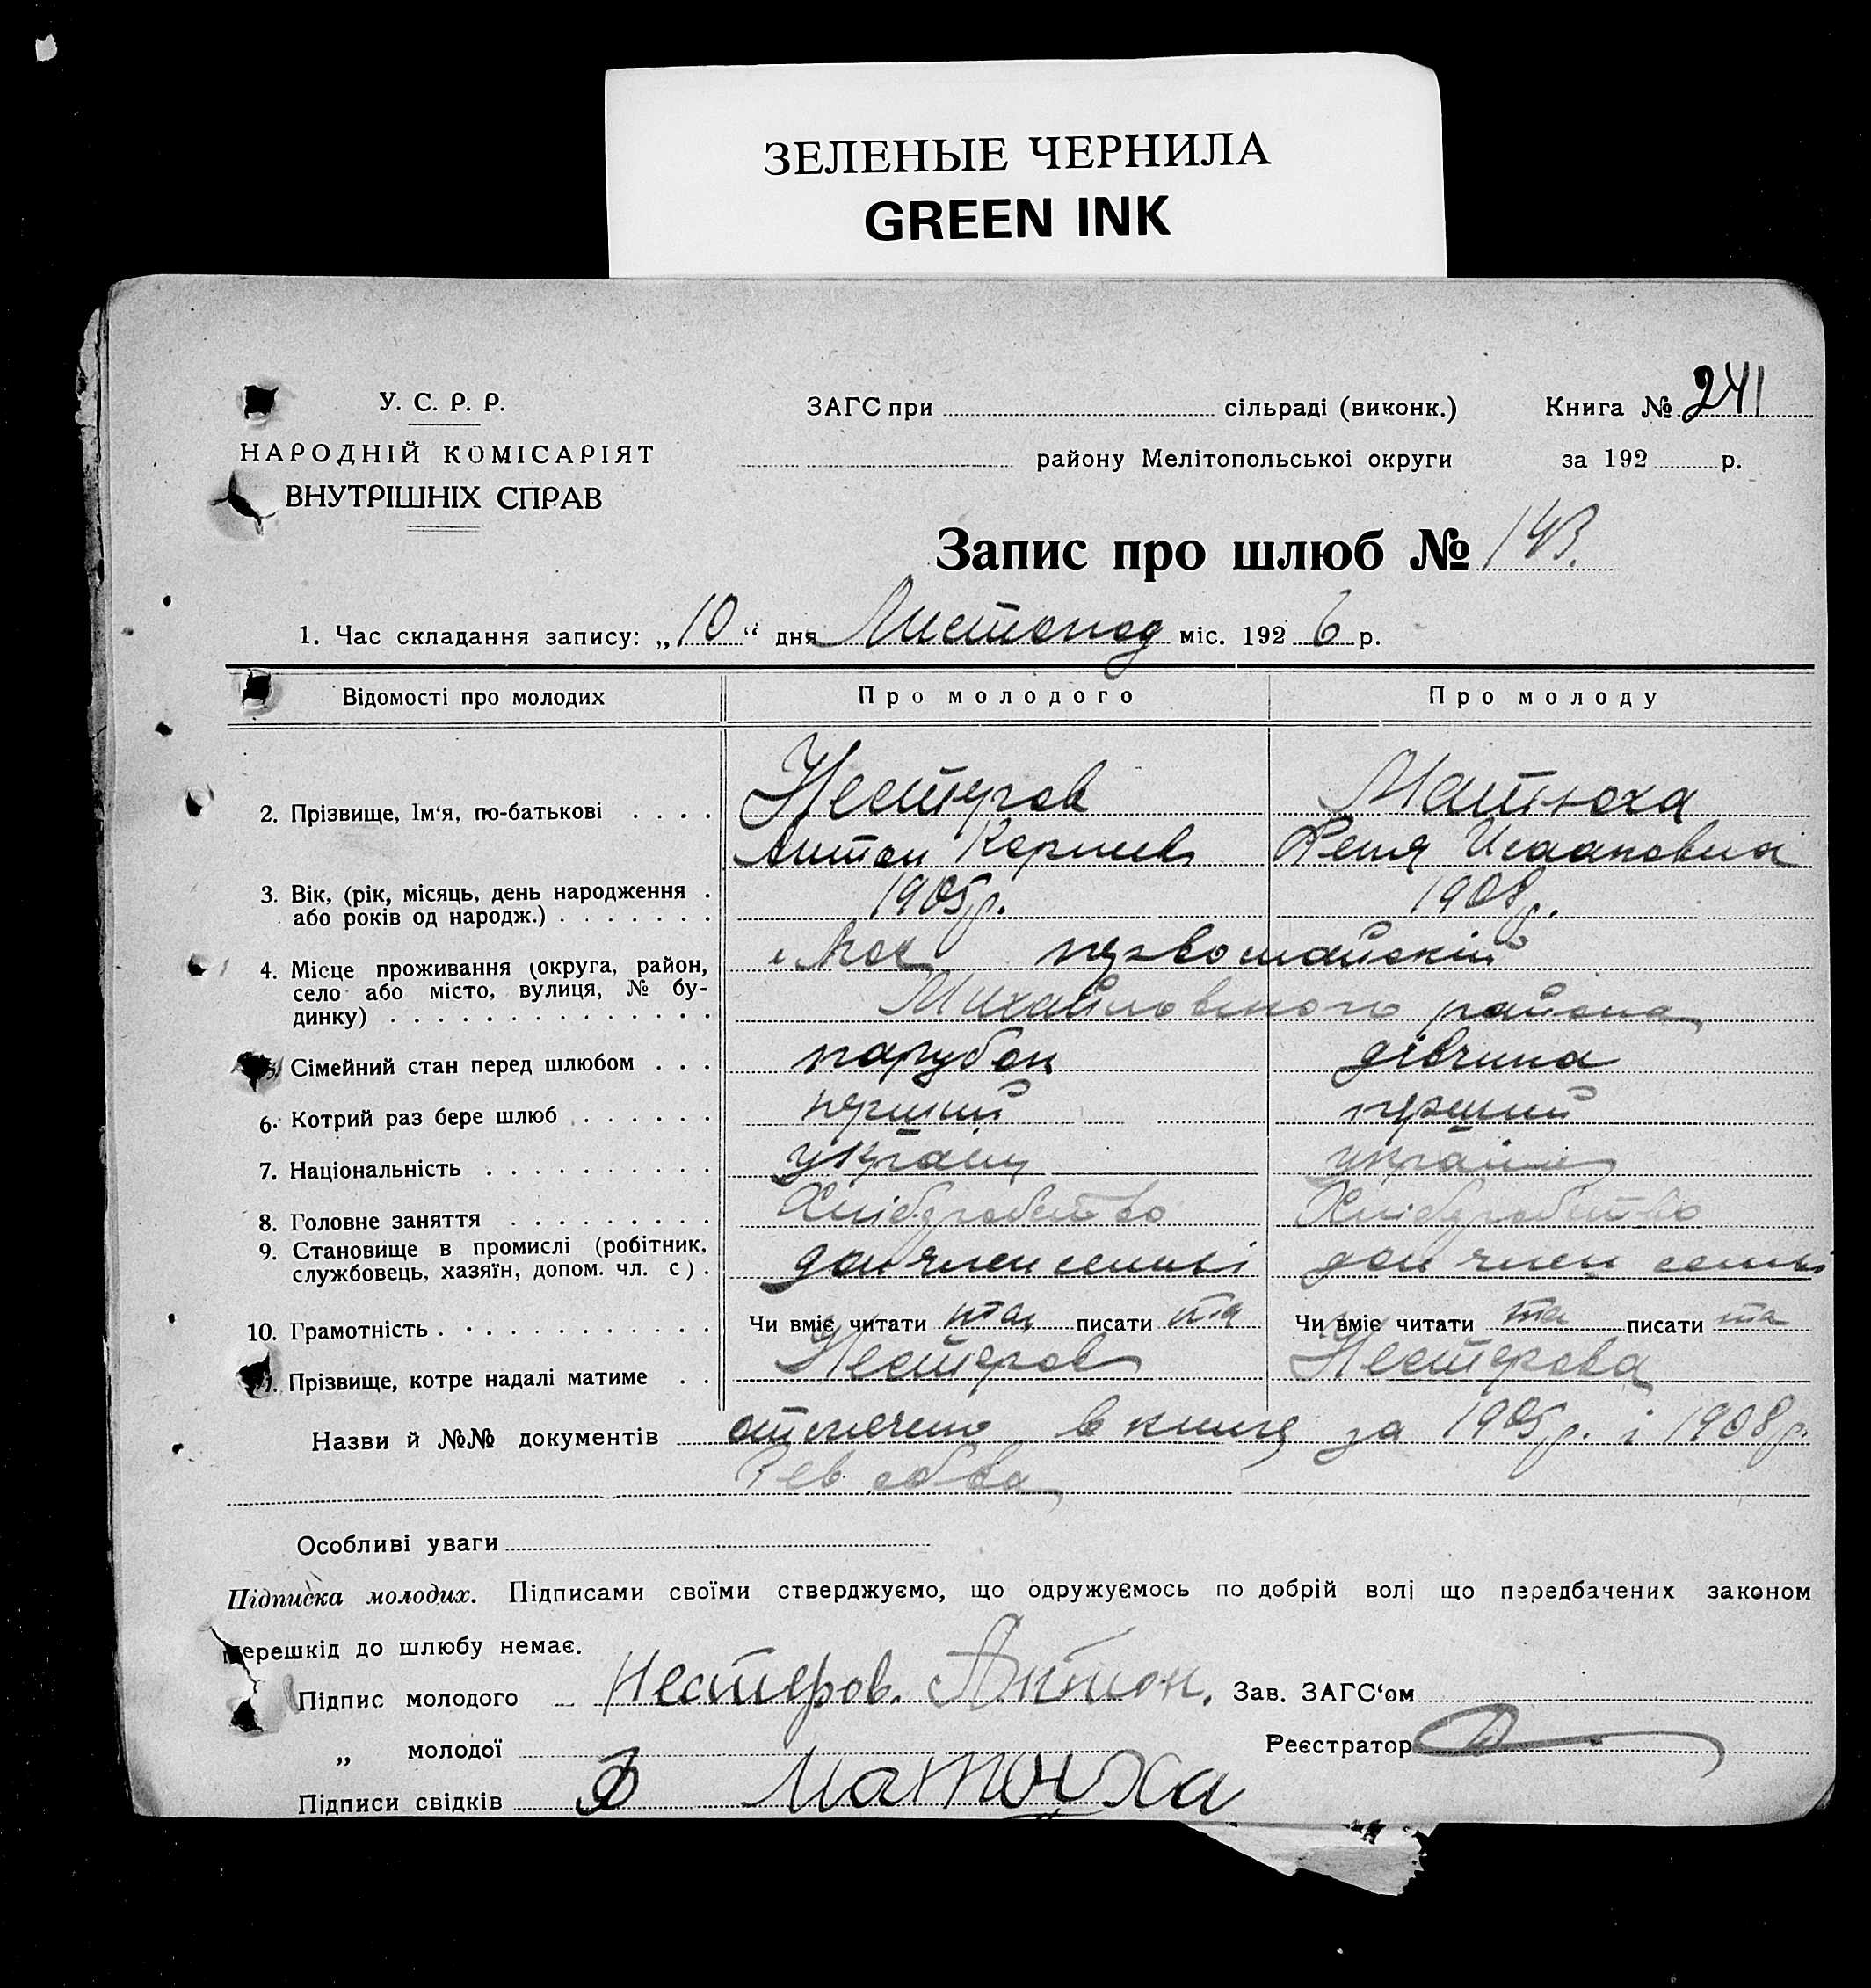 ЗЕЛЕНЫЕ ЧЕРНИЛА
GREEN INK
У. С. Р. Р.
НАРОДНІЙ КОМІСАРІЯТ
ВНУТРІШНІХ СПРАВ
ЗАГС при сільраді (виконк.)
району Мелітопольської округи
Книга № 241
за 192 р.
Запис про шлюб № 143.
1. Час складання запису: „10“ дня Листопад міс. 1926 р.
Відомості про молодих Про молодого Про молоду
2. Прізвище, Ім‘я, по-батькові Нестеров Матюха
Антон Корнеев Феня Исааковна
3. Вік, (рік, місяць, день народження 1905 р. 1908 р.
або років од народж.)
4. Місце проживання (округа, район, первомайскій
село або місто, вулиця, № бу- Михайловского района
динку)
5. Сімейний стан перед шлюбом парубок дівчина
6. Котрий раз бере шлюб перший перший
7. Національність україн україн
8. Головне заняття Хлібуробство Хлібуробство
9. Становище в промислі (робітник, доп член семьі доп член семьі
службовець, хазяїн, допом. чл. с)
10. Грамотність Чи вміє читати так писати та Чи вміє читати та писати та
11. Прізвище, котре надалі матиме Нестеров Нестерова
Назви й №№ документів отмечено в книге за 1905 р. і 1908 р.
Особливі уваги
Підписка молодих. Підписами своїми стверджуємо, що одружуємось по добрій волі що передбачених законом
перешкід до шлюбу немає.
Підпис молодого Нестеров. Антон. Зав. ЗАГС‘ом
„ молодої Реєстратор
Підписи свідків Ф Матюха